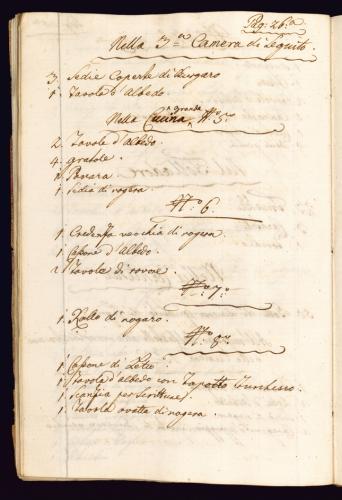 Pag: 26.a
Nella 3.a Camera di seguito.
3. Sedie Coperte di Bulgaro
1. Tavola d'Albedo
Nella Cucina grande N.o 5.o
2. Tavole d'Albedo
4. gratole
1. Panara
1. Sedia di nogera
N.o 6.
1. Credenza vecchia di nogera
1. Casone d'Albedo.
2. Tavole di rovere.
N.o 7.o
1. di nogaro.
N.o 8.o
1. Casone di
1. Tavola d'albedo con Tapetto Turchesco.
1. Scanzia per Scritture
1. Tavola ovatta di nogera.